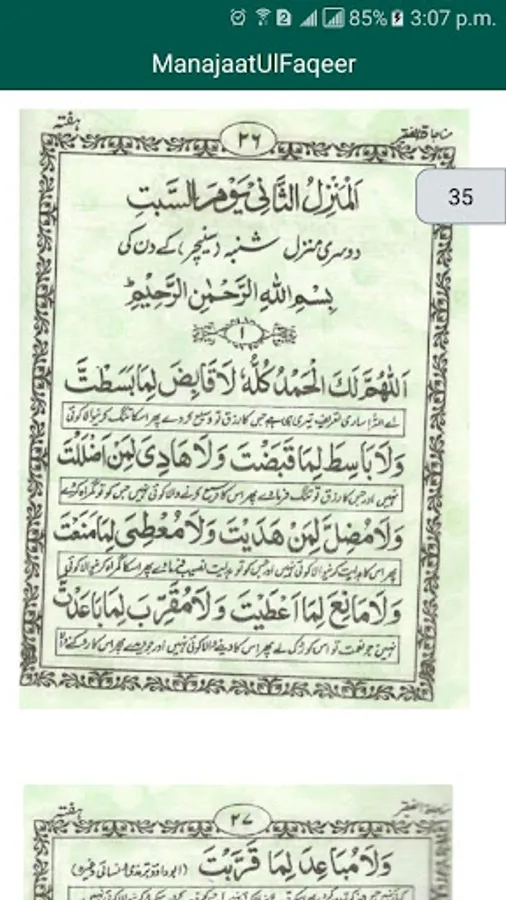 85% 3:07 p.m.
ManajaatUlFaqeer
ہفتہ ٢٦ مناجاة الفقیر
35
اَلْمَنْزِلُ الثَّانِیْ یَوْمَ السَّبْتِ
دوسری منزل شنبہ (سنیچر) کے دن کی
بِسْمِ اللهِ الرَّحْمٰنِ الرَّحِیْمِ
١
اَللّٰهُمَّ لَكَ الْحَمْدُ كُلُّهٗ لَا قَابِضَ لِمَا بَسَطْتَّ
اے اللہ! ساری تعریف تیری ہی ہے جس کا رزق تو وسیع کر دے پھر اس کا تنگ کرنیوالا کوئی
وَلَا بَاسِطَ لِمَا قَبَضْتَ وَلَا هَادِیَ لِمَنْ اَضْلَلْتَ
نہیں اور جس کا رزق تو تنگ فرما دے پھر اس کا وسیع کرنے والا کوئی نہیں جس کو تو گمراہ کر دے
وَلَا مُضِلَّ لِمَنْ هَدَیْتَ وَلَا مُعْطِیَ لِمَا مَنَعْتَ
پھر اس کا ہدایت کرنیوالا کوئی نہیں اور جس کو تو ہدایت نصیب فرمادے پھر اس کا گمراہ کرنیوالا کوئی
وَلَا مَانِعَ لِمَا اَعْطَیْتَ وَلَا مُقَرِّبَ لِمَا بَاعَدْتَّ
نہیں جو نعمت تو اس کو روک لے پھر اس کا دینے والا کوئی نہیں اور جو دیدے پھر اس کا روکنے والا
ہفتہ ٢٧
وَلَا مُبَاعِدَ لِمَا قَرَّبْتَ (ابوداؤد ترمذی نسائی وغیرہ)